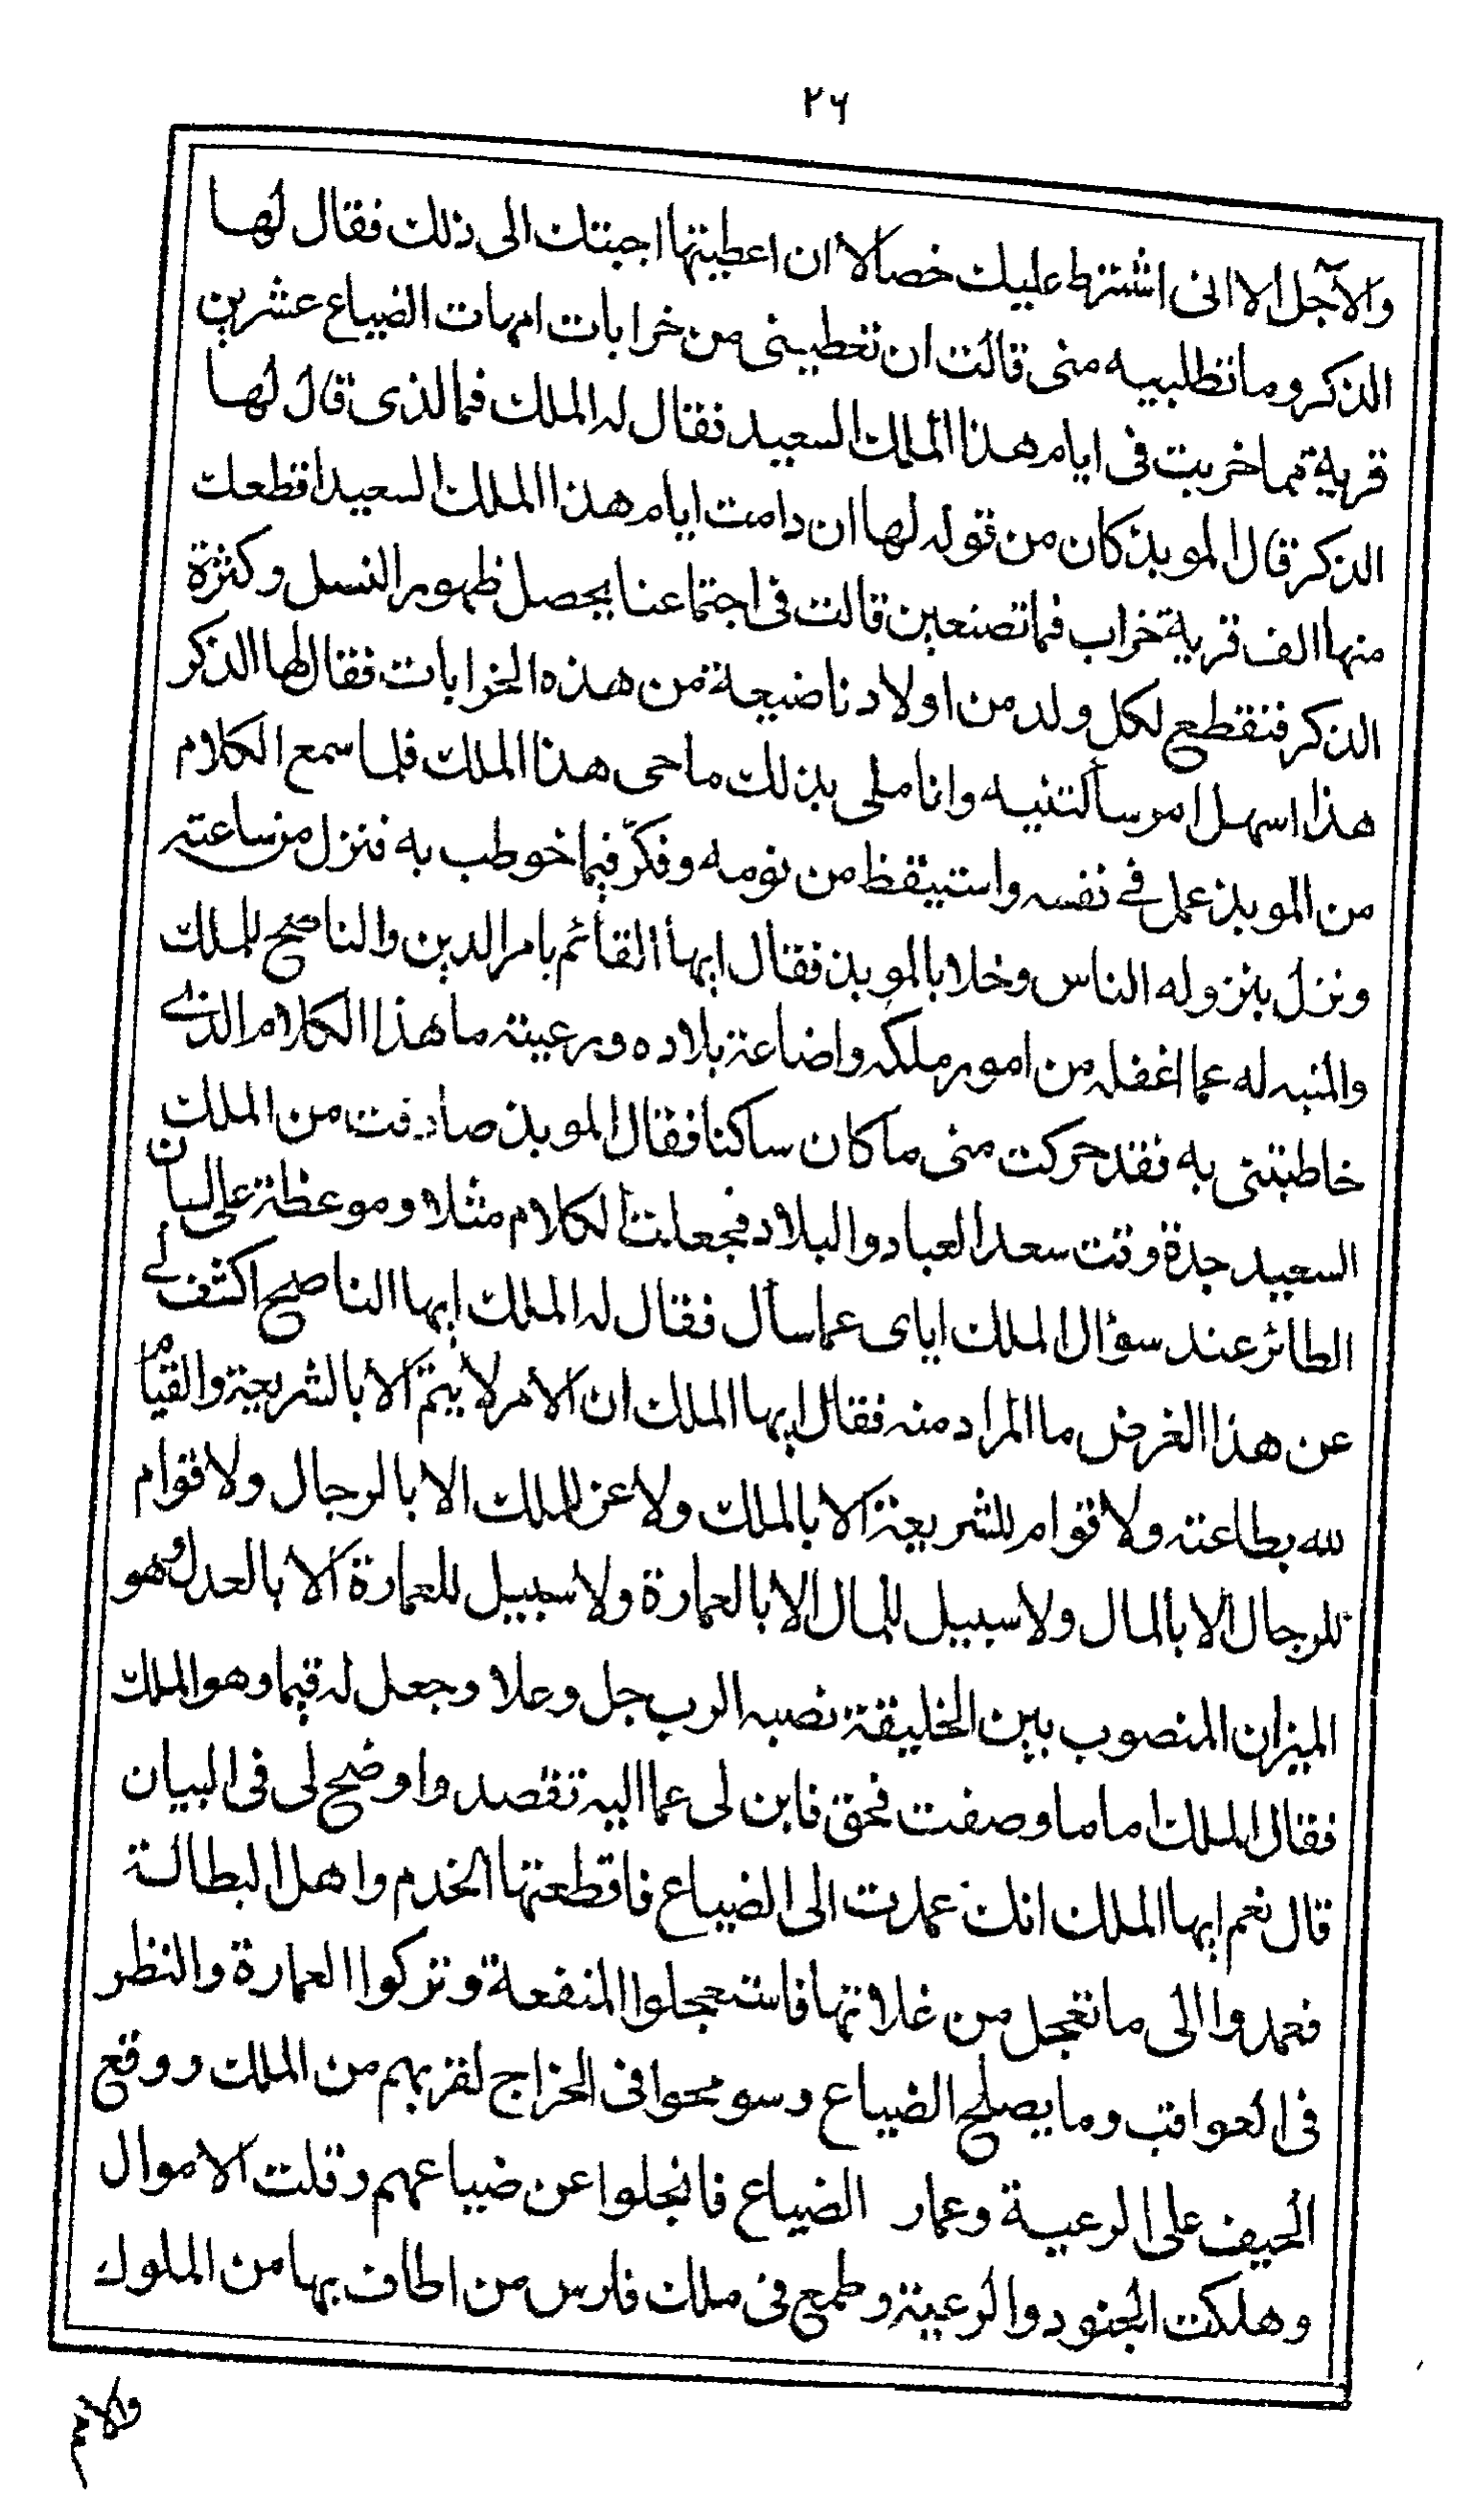 ٢٦
والآجل الا انى اشترط عليك خصالا ان اعطيتها اجبتك الى ذلك فقال لها
الذكر وما تطلبيه منى قالت ان تعطينى من خرابات امهات الضياع عشرين
قرية مما خربت فى ايام هذا الملك السعيد فقال له الملك فما الذى قال لها
الذكر قال الموبذ كان من قوله لها ان دامت ايام هذا الملك السعيد اقطعك
منها الف قرية خراب فما تصنعين قالت فى اجتماعنا يحصل ظهور النسل وكثرة
الذكر فنقطع لكل ولد من اولادنا ضيعة من هذه الخرابات فقال لها الذكر
هذا اسهل امر سألتنيه وانا ملى بذلك ما حى هذا الملك فلما سمع الكلام
من الموبذ عمل فى نفسه واستيقظ من نومه وفكّر فيما خوطب به فنزل من ساعته
ونزل بنزوله الناس وخلا بالموبذ فقال ايها القائم بامر الدين والناصح للملك
والمنبه له عما اغفله من امور ملكه واضاعة بلاده ورعيته ما هذا الكلام الذى
خاطبتنى به فقد حركت منى ما كان ساكنا فقال الموبذ صادفت من الملك
السعيد جدة وقت سعد العباد والبلاد فجعلت الكلام مثلا وموعظة على لسان
الطائر عند سؤال الملك اياى عما سأل فقال له الملك ايها الناصح اكشف لى
عن هذا الغرض ما المراد منه فقال ايها الملك ان الامر لا يتمّ الا بالشريعة والقيام
لله بطاعته ولا قوام للشريعة الا بالملك ولا عز للملك الا بالرجال ولا قوام
للرجال الا بالمال ولا سبيل للمال الا بالعمارة ولا سبيل للعمارة الا بالعدل وهو
الميزان المنصوب بين الخليقة نصبه الرب جل وعلا وجعل له قيما وهو الملك
فقال الملك اما ما وصفت فحق فابن لى عما اليه تقصد واوضح لى فى البيان
قال نعم ايها الملك انك عمدت الى الضياع فاقطعتها الخدم واهل البطالة
فعمدوا الى ما تعجل من غلاتها فاستعجلوا المنفعة وتركوا العمارة والنظر
فى العواقب وما يصلح الضياع وسومحوا فى الخراج لقربهم من الملك ووقع
الحيف على الرعية وعمار الضياع فانجلوا عن ضياعهم وقلت الاموال
وهلكت الجنود والرعية وطمع فى ملك فارس من اطاف بها من الملوك
والامم